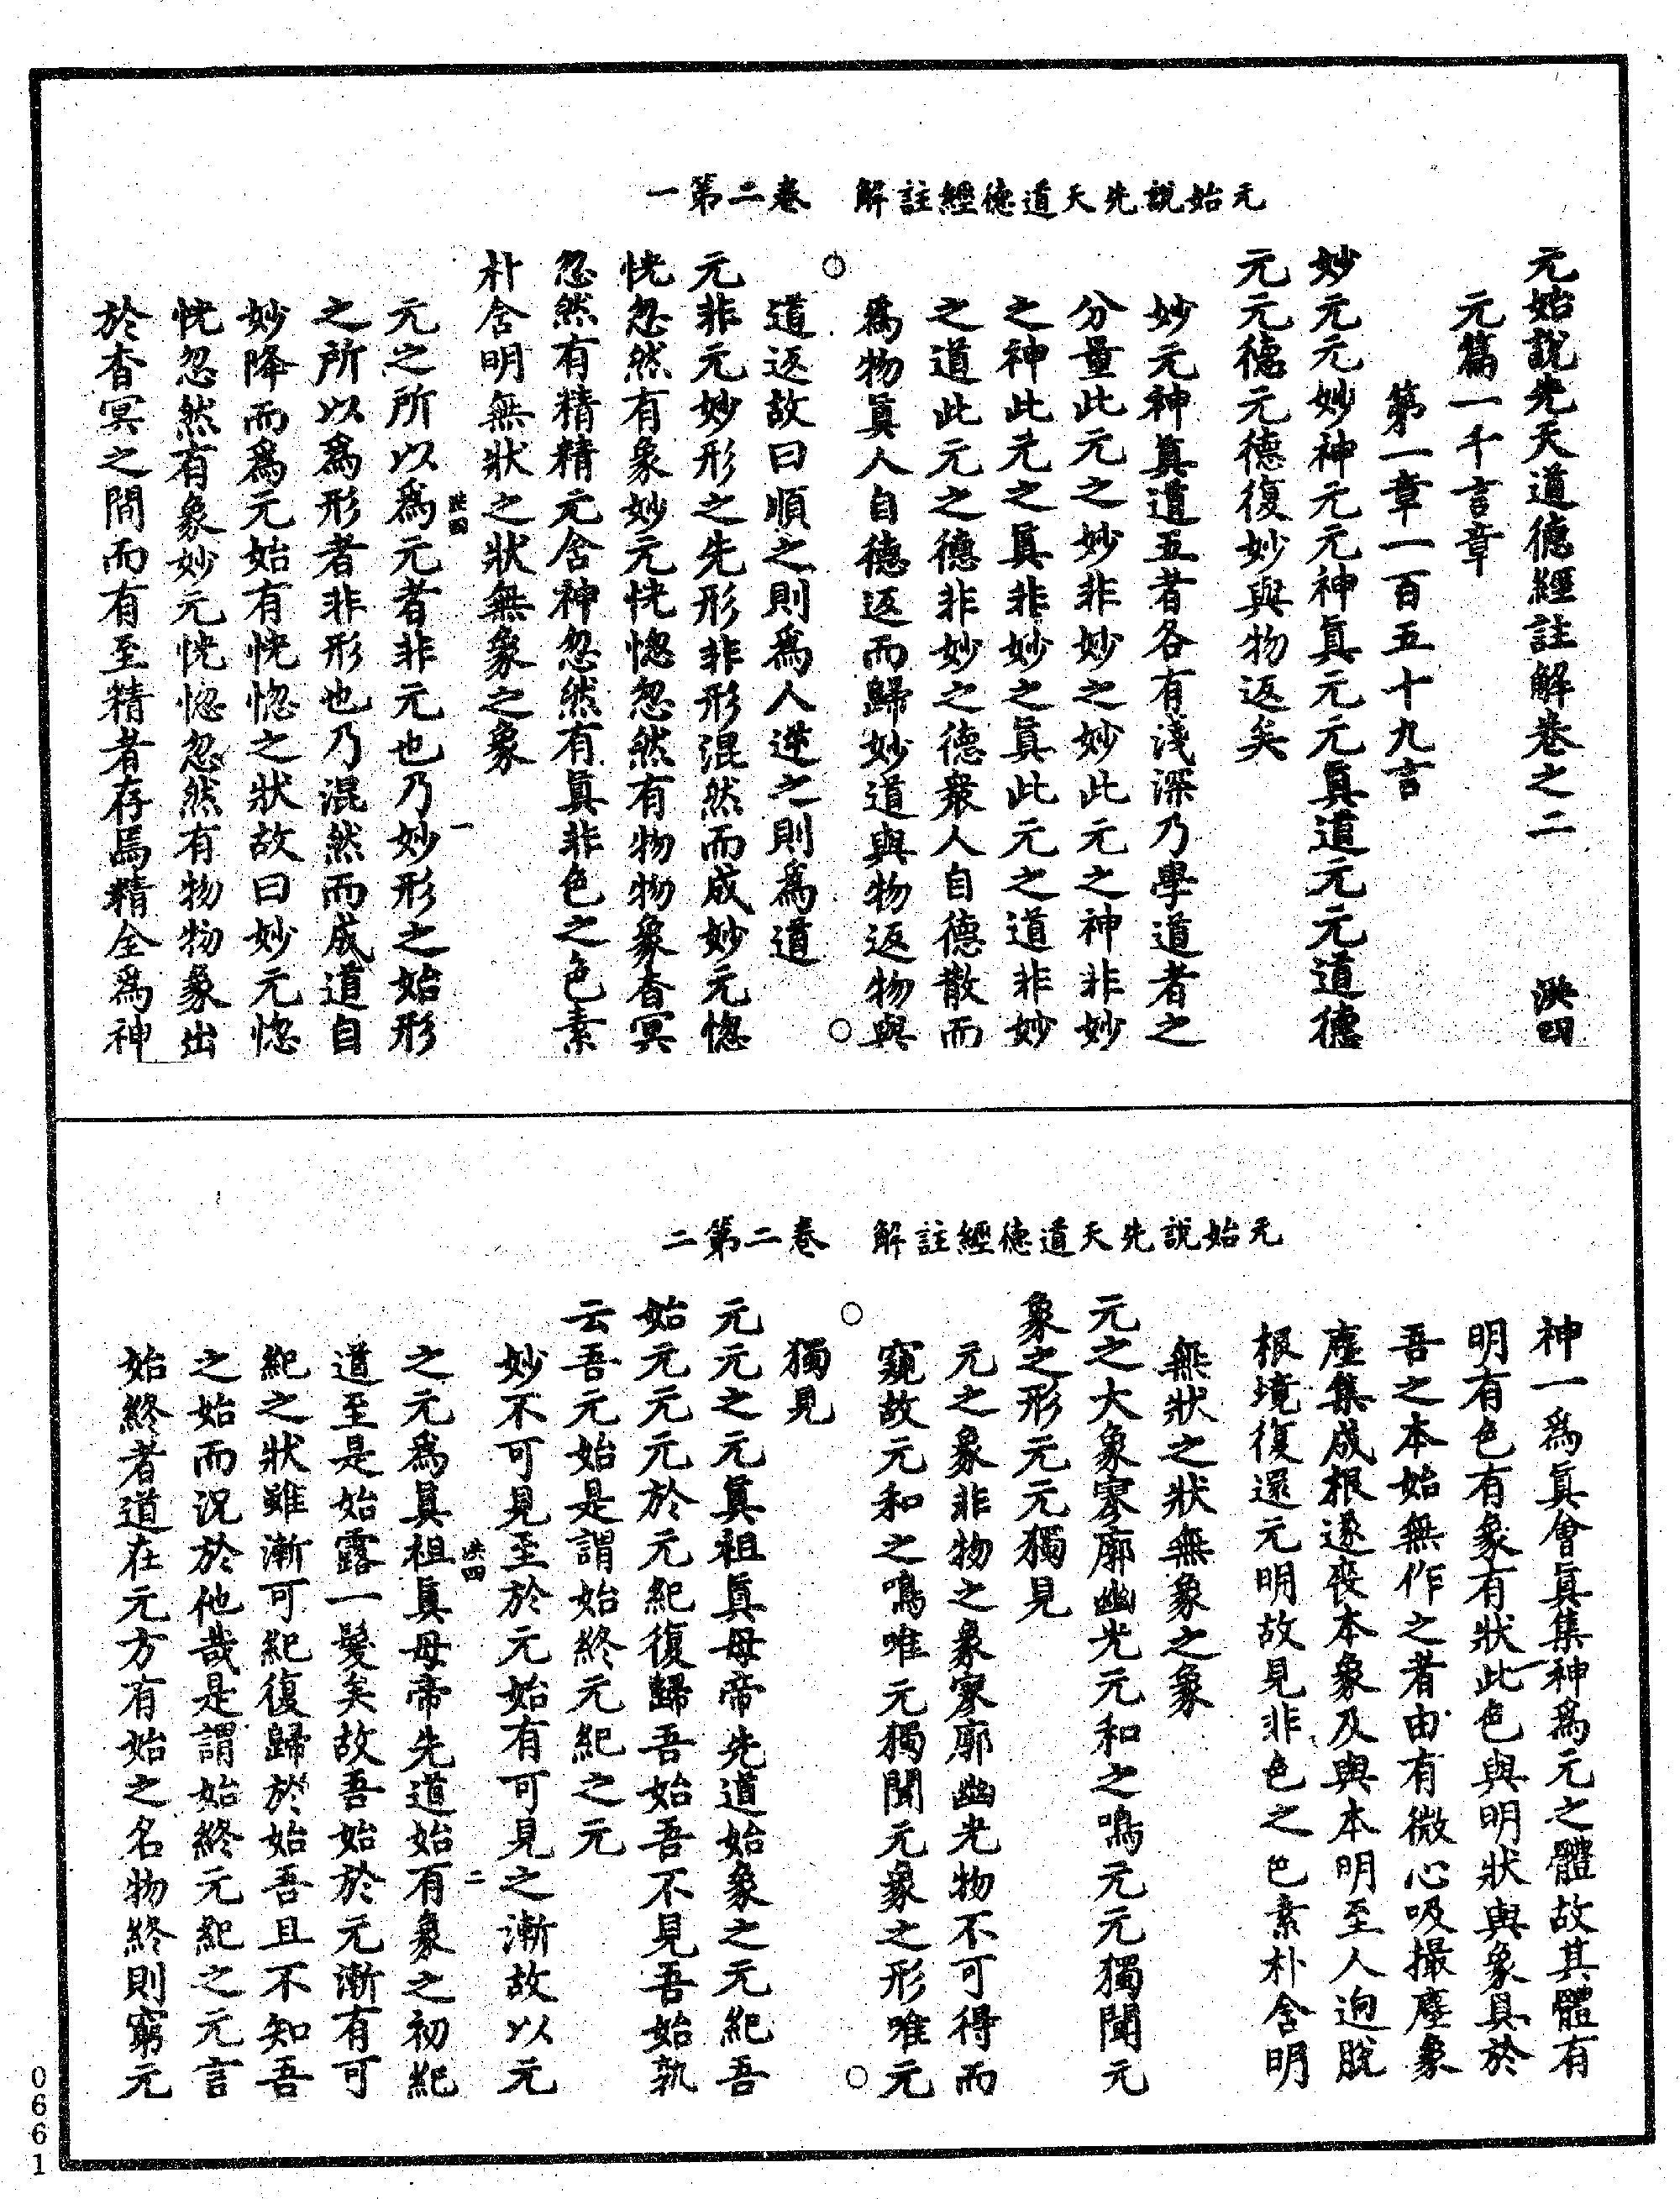 元始說先天道德經註解　卷二第一
元始說先天道德經註解卷之二　洪四
元篇一千言章
第一章一百五十九言
妙元元妙神元元神眞元元眞道元元道德
元元德元德復妙與物返矣
妙元神眞道五者各有淺深乃學道者之
分量此元之妙非妙之妙此元之神非妙
之神此元之眞非妙之眞此元之道非妙
之道此元之德非妙之德衆人自德散而
爲物眞人自德返而歸妙道與物返物與
道返故曰順之則爲人逆之則爲道
元非元妙形之先形非形混然而成妙元惚
恍忽然有象妙元恍惚忽然有物物象杳冥
忽然有精精元含神忽然有眞非色之色素
朴含明無狀之狀無象之象
元之所以爲元者非元也乃妙形之始形
之所以爲形者非形也乃混然而成道自
妙降而爲元始有恍惚之狀故曰妙元惚
恍忽然有象妙元恍惚忽然有物物象出
於杳冥之間而有至精者存焉精全爲神
洪四
一
元始說先天道德經註解　卷二第二
神一爲眞會眞集神爲元之體故其體有
明有色有象有狀此色與明狀與象具於
吾之本始無作之者由有微心吸撮塵象
塵集成根遂喪本象及與本明至人迥脫
根境復還元明故見非色之色素朴含明
無狀之狀無象之象
元之大象寥廓幽光元和之鳴元元獨聞元
象之形元元獨見
元之象非物之象寥廓幽光物不可得而
窺故元和之鳴唯元獨聞元象之形唯元
獨見
元元之元眞祖眞母帝先道始象之元紀吾
始元元元於元紀復歸吾始吾不見吾始孰
云吾元始是謂始終元紀之元
妙不可見至於元始有可見之漸故以元
之元爲眞祖眞母帝先道始有象之初紀
道至是始露一髮矣故吾始於元漸有可
紀之狀雖漸可紀復歸於始吾且不知吾
之始而況於他哉是謂始終元紀之元言
始終者道在元方有始之名物終則窮元
洪四
二
0661